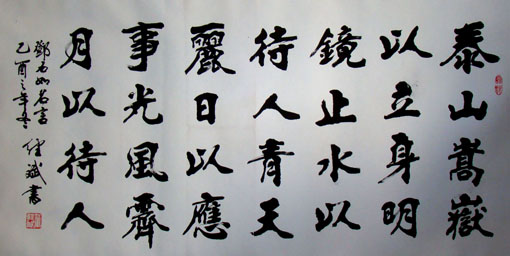 泰山嵩嶽
以立身明
鏡止水以
待人青天
麗日以應
事光風霽
月以待人
鄧石如名言
乙酉之年冬 斌書